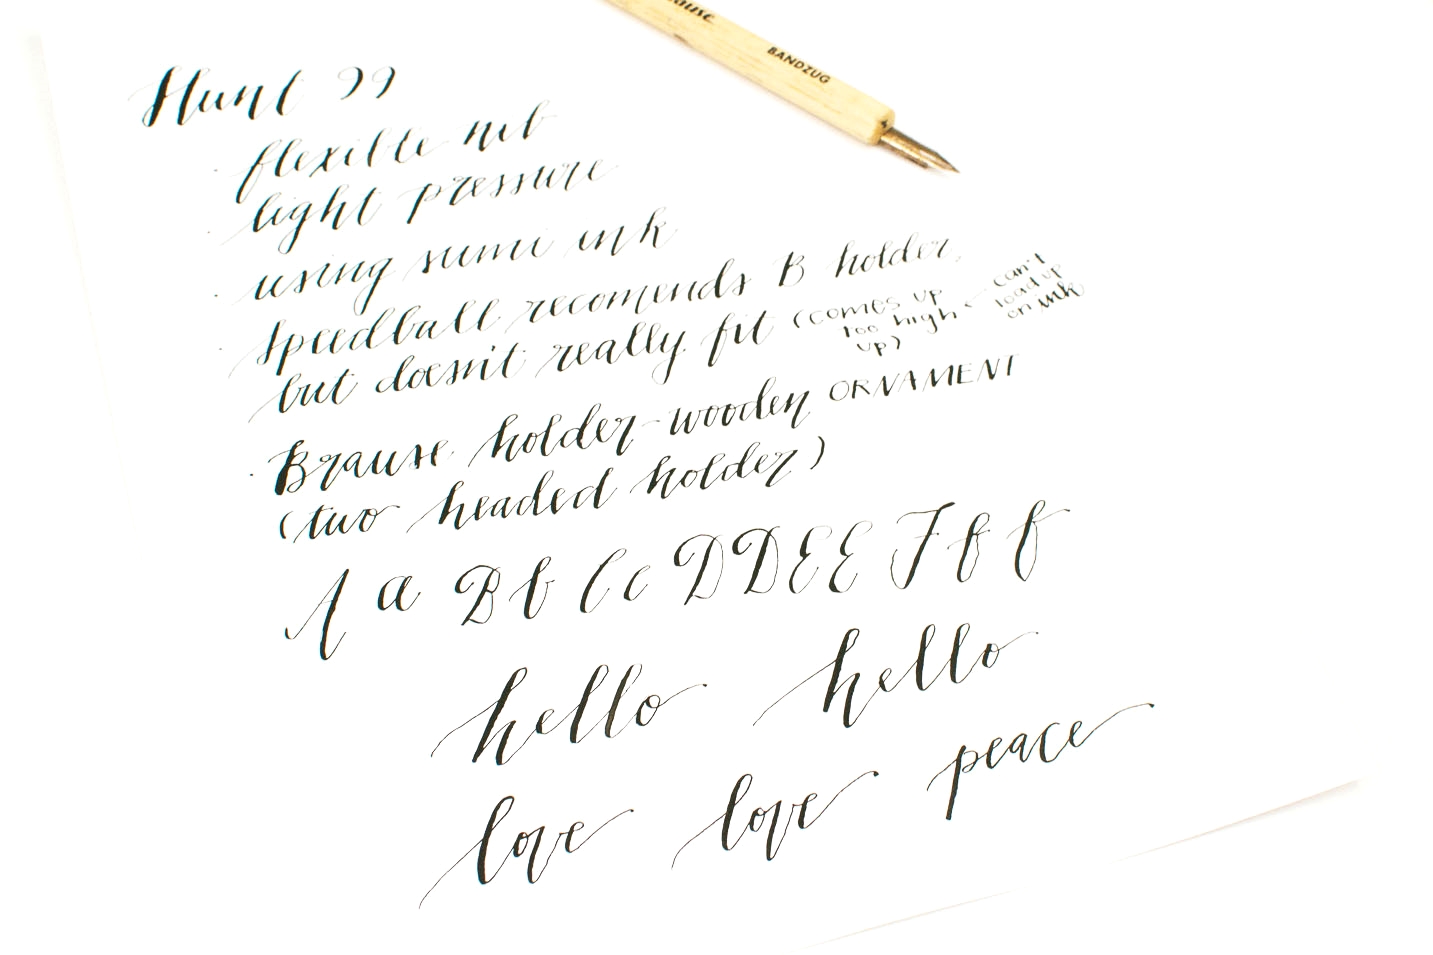 ause
BANDZUG
Hunt 99
· flexible nib
light pressure
· using sumi ink
· Speedball recomends B holder,
but doesn't really fit (comes up
too high
up)
← can't
load up
on ink
· Brause holder-wooden ORNAMENT
(two headed holder)
A a B b C c D D E E F f f
hello hello
love love peace